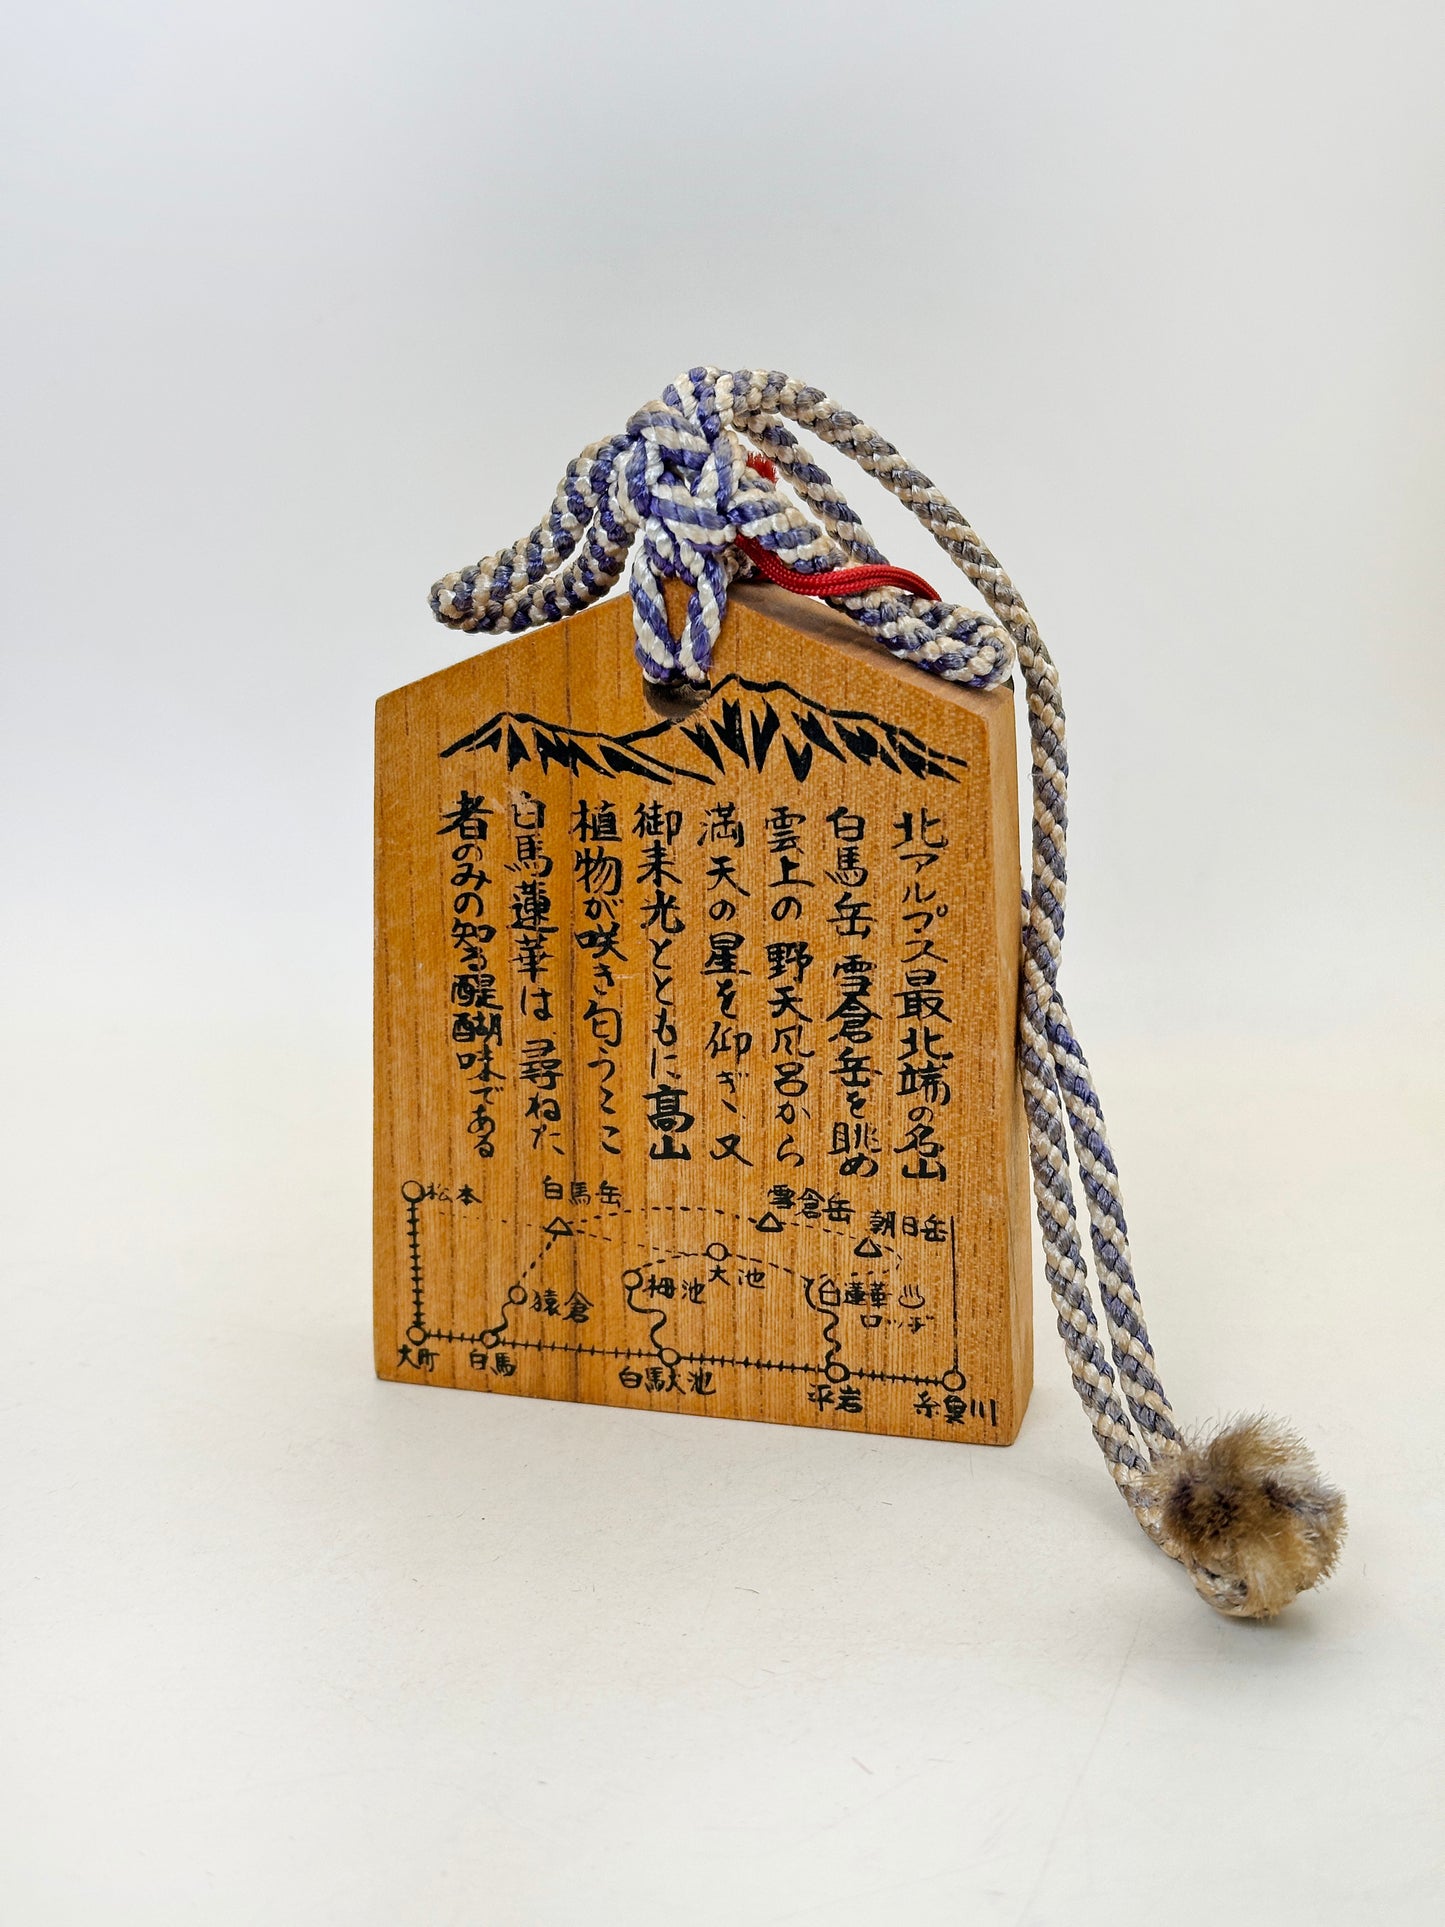 北アルプス最北端の名山
白馬岳 雪倉岳を眺め
雲上の野天風呂から
満天の星を仰ぎ、又
御来光とともに高山
植物が咲き匂うここ
白馬蓮華は、尋ねた
者のみの知る醍醐味である
松本
白馬岳
雪倉岳
朝日岳
大池
栂池
猿倉
白蓮華♨
ロッヂ
大町
白馬
白馬大池
平岩
糸魚川